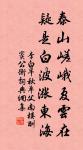 泰山嵯峨夏雲在
疑是白波漲東海
李白早秋單父南樓酬
竇公衡詩典網集